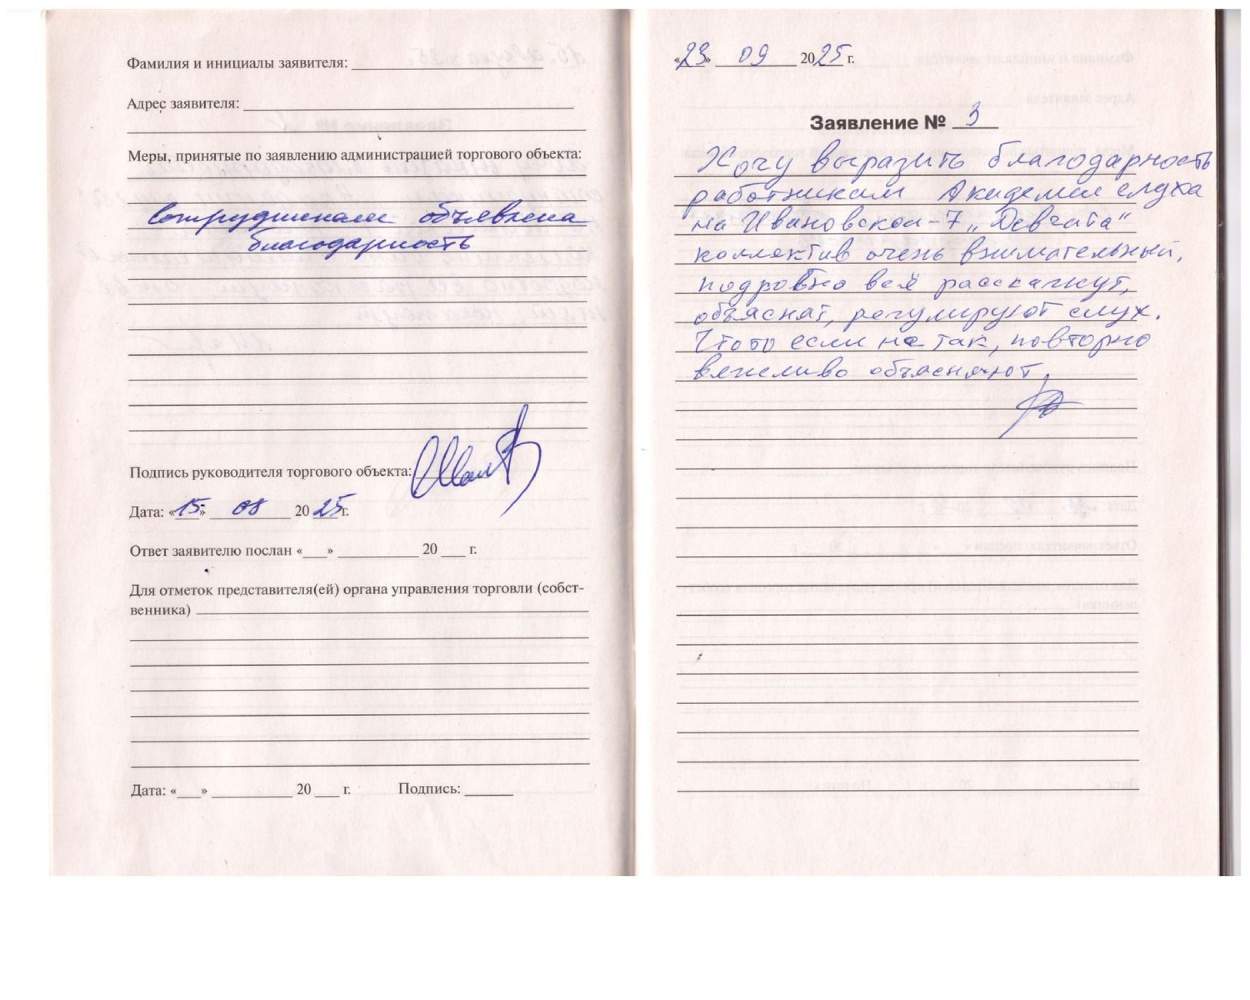 Фамилия и инициалы заявителя:
Адрес заявителя:
Меры, принятые по заявлению администрацией торгового объекта:
Сотрудникам объявлена
благодарность
Подпись руководителя торгового объекта:
Дата: «15» 08 2025 г.
Ответ заявителю послан «___» ___ 20 ___ г.
Для отметок представителя(ей) органа управления торговли (собст-
венника)
Дата: «___» ___ 20 ___ г. Подпись:
«23» 09 2025 г.
Заявление № 3
Хочу выразить благодарность
работникам Академии слуха
на Ивановской-7 „Девчата"
коллектив очень внимательный,
подробно всё расскажут,
объяснят, регулируют слух.
Что то если не так, повторно
вежливо объясняют.